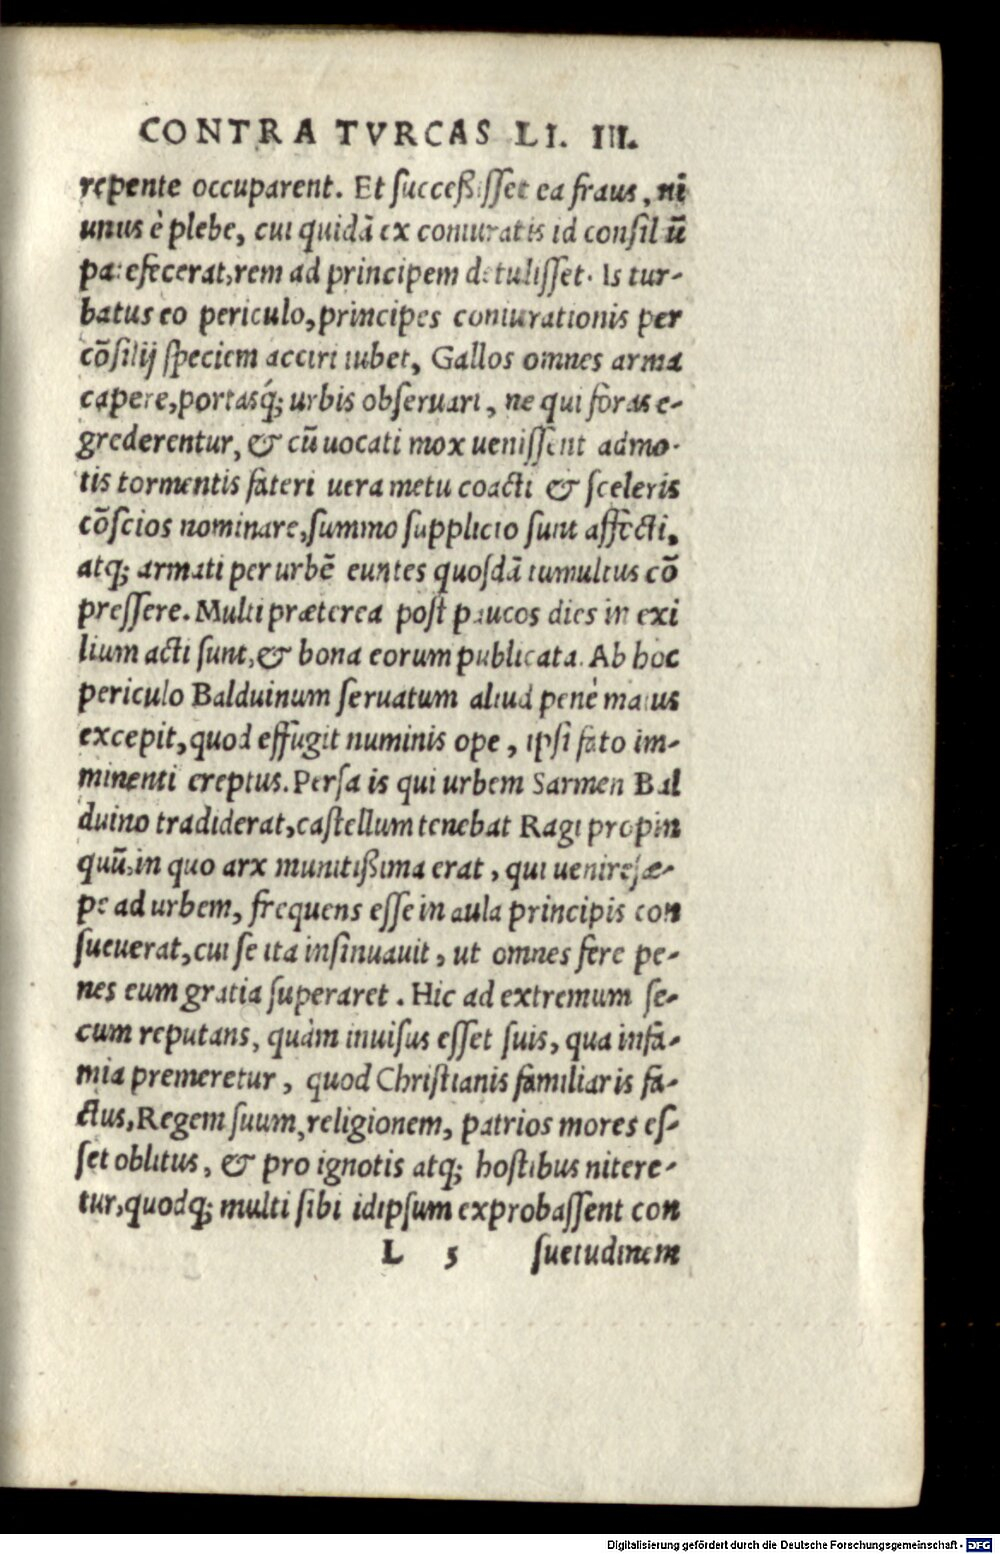 CONTRA TVRCAS LI. III.
repente occuparent. Et succeßisset ea fraus, ni
unus è plebe, cui quidā ex coniuratis id consiliū
patefecerat, rem ad principem detulisset. Is tur-
batus eo periculo, principes coniurationis per
cōsilij speciem acciri iubet, Gallos omnes arma
capere, portasq́; urbis obseruari, ne qui foras e-
grederentur, & cū uocati mox uenissent admo-
tis tormentis fateri uera metu coacti & sceleris
cōscios nominare, summo supplicio sunt affecti,
atq; armati per urbē euntes quosdā tumultus cō
pressere. Multi præterea post paucos dies in exi
lium acti sunt, & bona eorum publicata. Ab hoc
periculo Balduinum seruatum aliud penè maius
excepit, quod effugit numinis ope, ipsi fato im-
minenti ereptus. Persa is qui urbem Sarmen Bal
duino tradiderat, castellum tenebat Ragi propin
quū, in quo arx munitißima erat, qui uenire sæ-
pe ad urbem, frequens esse in aula principis con
sueuerat, cui se ita insinuauit, ut omnes fere pe-
nes eum gratia superaret. Hic ad extremum se-
cum reputans, quàm inuisus esset suis, qua infa-
mia premeretur, quod Christianis familiaris fa-
ctus, Regem suum, religionem, patrios mores es-
set oblitus, & pro ignotis atq; hostibus nitere-
tur, quodq; multi sibi idipsum exprobassent con
L 5 suetudinem
Digitalisierung gefördert durch die Deutsche Forschungsgemeinschaft - DFG